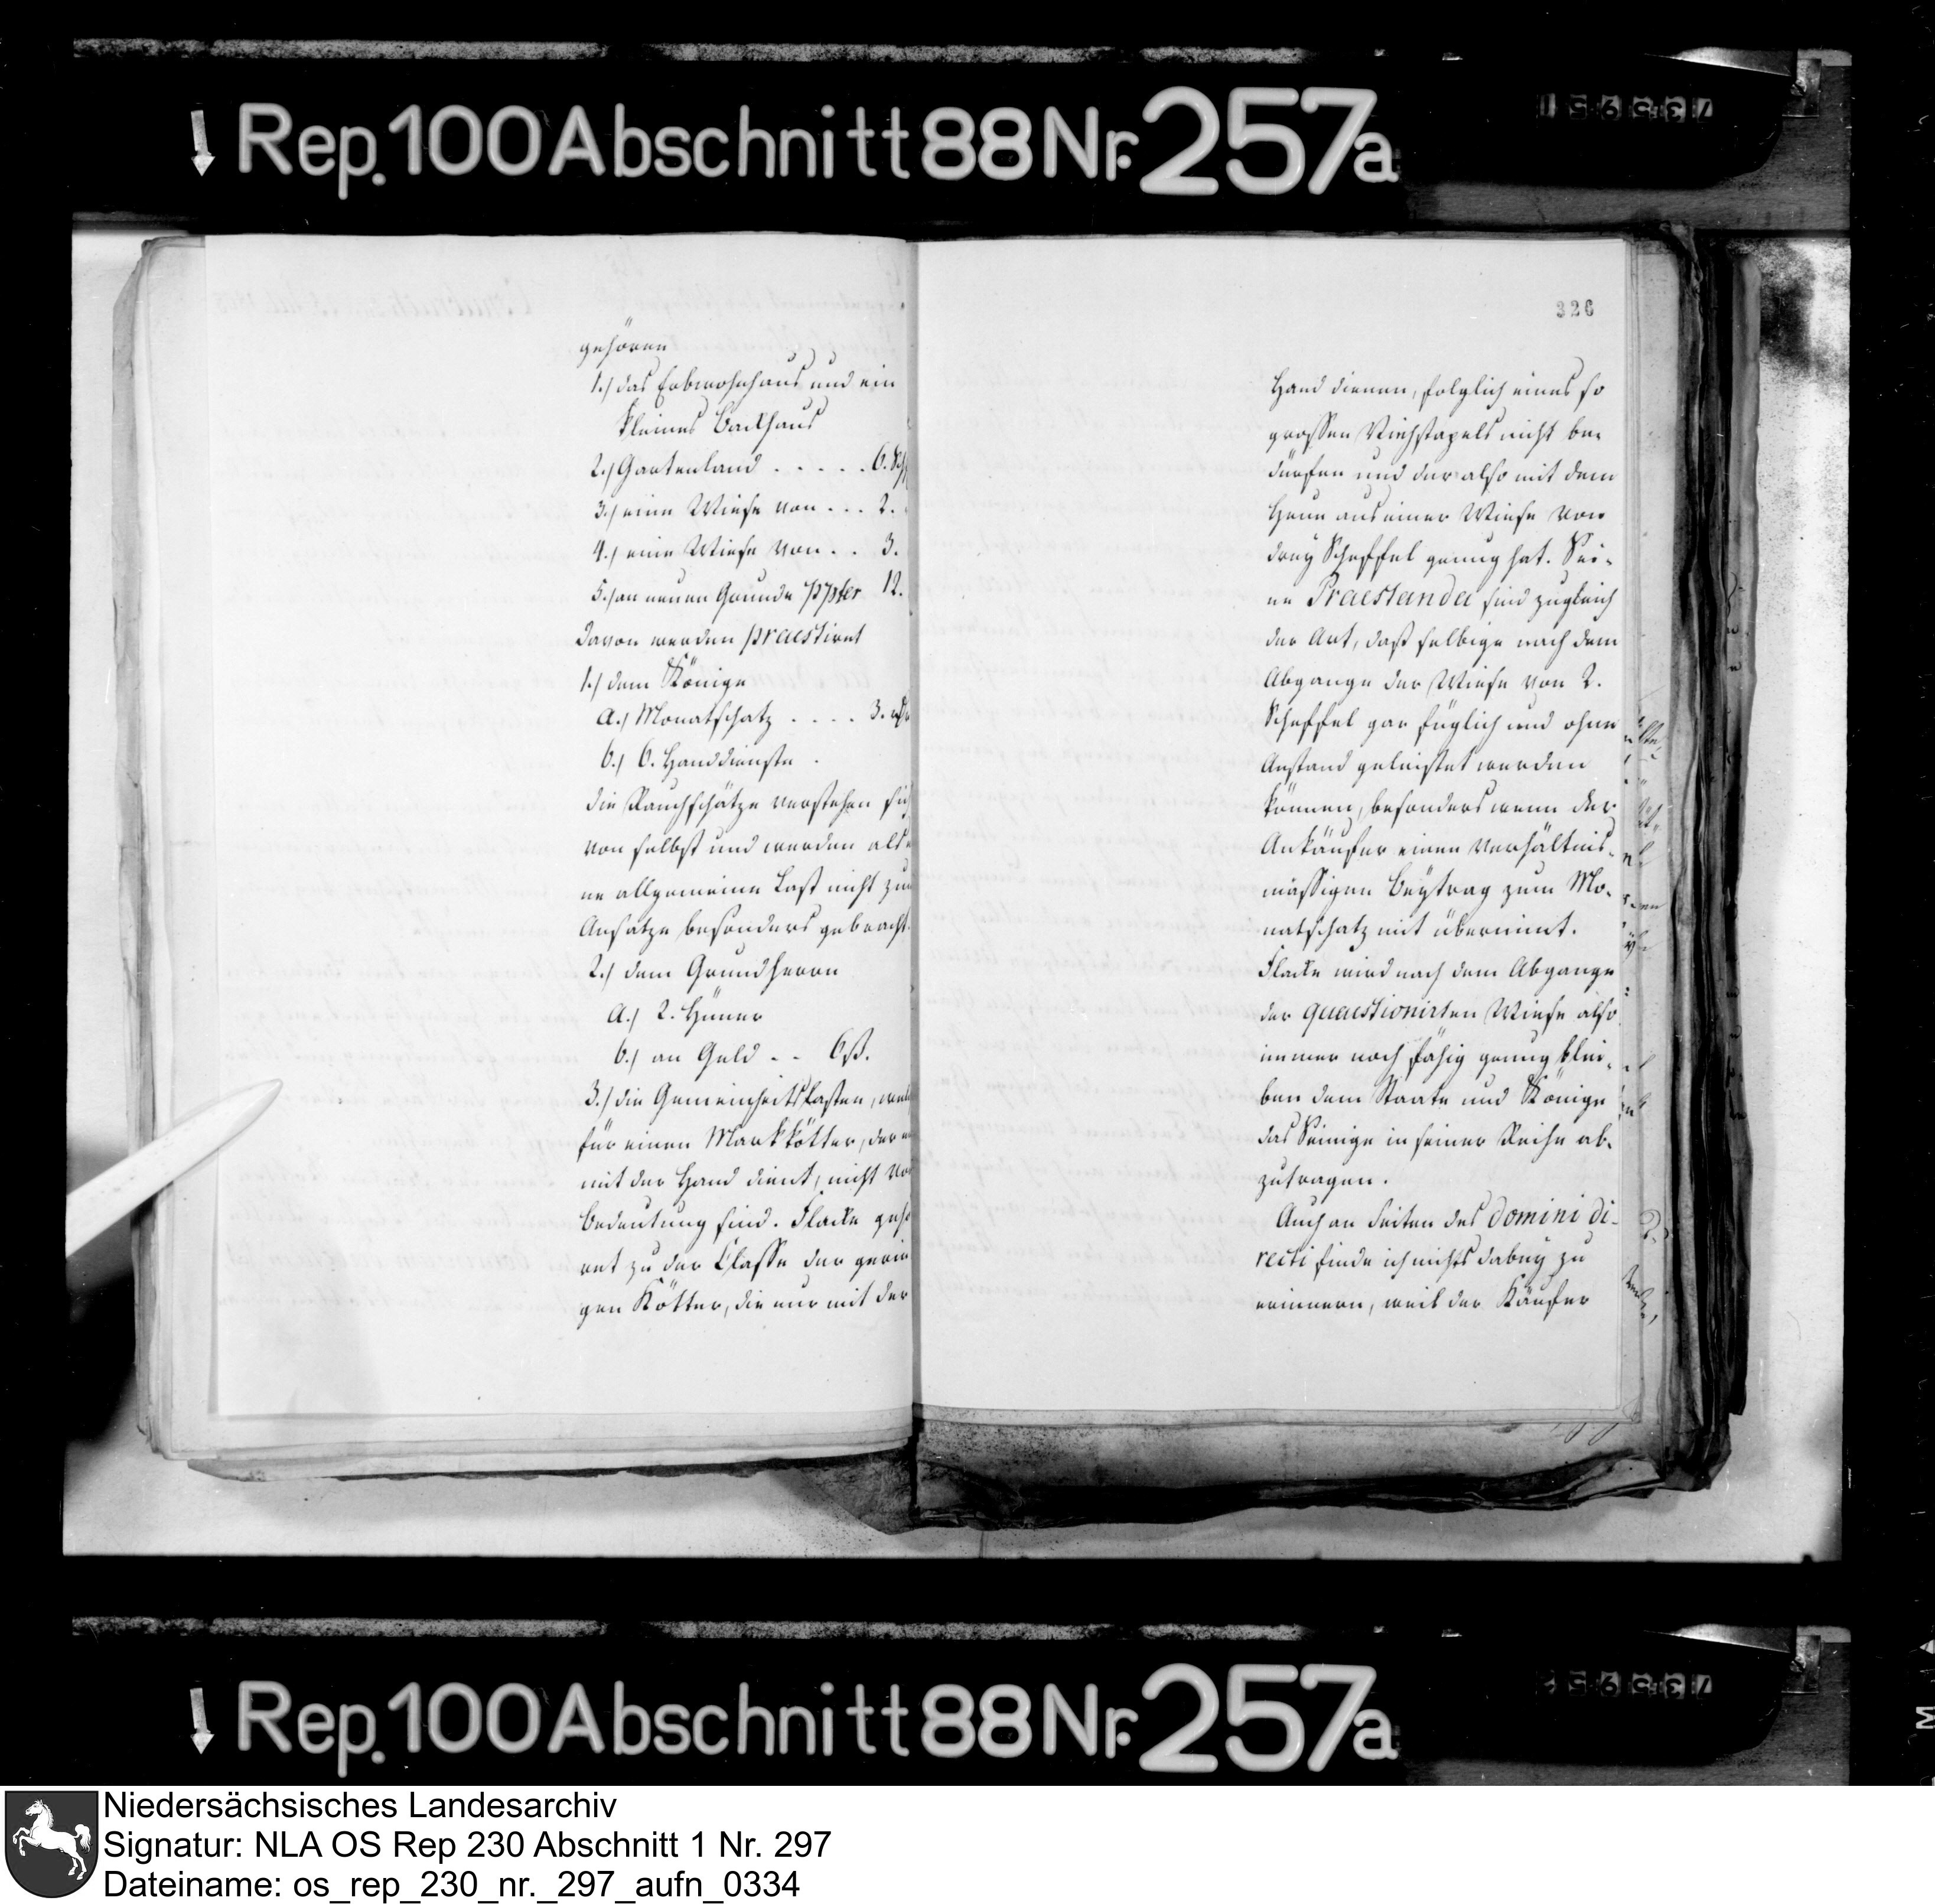 Rep. 100 Abschnitt 88 Nr. 257a
gehören
1.) das Erbwohnhaus und ein
kleines Backhaus
2.) Gartenland . . . . . 6. Sch
3.) eine Wiese von . . . 2.
4.) eine Wiese von . . 3.
5.) an neuen Grunde 12.
Davon werden praestirt
1.) dem Könige
a.) Monatschatz . . . . 3.
b.) 6. Handdienste .
die Rauchschätze verstehen sich
von selbst und werden als
ne allgemeine Last nicht zum
Ansatze besonders gebracht.
2.) dem Grundherrn
a.) 2. Hüner
b.) an Geld . . 6ß.
3.) die Gemeinheitslasten,
für einen Markkötter, der
mit der Hand dient, nicht von
Bedeutung sind. Flacke gehö
ret zu der Classe der gerin
gen Kötter, die nur mit der
326
Hand dienen, folglich eines so
grossen Viehstapels nicht be-
dürfen und der also mit dem
Heue aus einer Wiese von
drey Scheffel genug hat. Sei-
ne Praestanda sind zugleich
der Art, daß selbige nach dem
Abgange der Wiese von 2.
Scheffel gar füglich und ohne
Anstand geleistet werden
können, besonders wenn der
Ankäufer einen verhältnis-
mässigen Beytrag zum Mo-
natschatz mit übernimt.
Flacke wird nach dem Abgange
der quaestionirten Wiese also
immer noch fähig genug blei-
ben dem Staate und Könige
das Seinige in seiner Reihe ab-
zutragen.
Auch an Seiten des Domini di-
recti finde ich nichts dabey zu
erinnern, weil der Käufer
Rep. 100 Abschnitt 88 Nr. 257a
Niedersächsisches Landesarchiv
Signatur: NLA OS Rep 230 Abschnitt 1 Nr. 297
Dateiname: os_rep_230_nr._297_aufn_0334